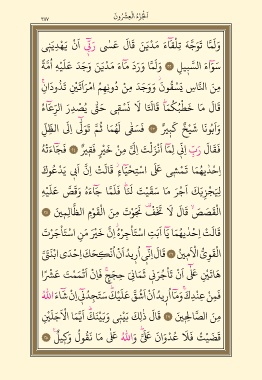 اَلْجُزْءُ الْعِشْرُونَ
٣٨٧
وَلَمَّا تَوَجَّهَ تِلْقَٓاءَ مَدْيَنَ قَالَ عَسٰى رَبّ۪ٓي اَنْ يَهْدِيَن۪ي
سَوَٓاءَ السَّب۪يلِ ﴿٢٢﴾ وَلَمَّا وَرَدَ مَٓاءَ مَدْيَنَ وَجَدَ عَلَيْهِ اُمَّةً
مِنَ النَّاسِ يَسْقُونَۘ وَوَجَدَ مِنْ دُونِهِمُ امْرَاَتَيْنِ تَذُودَانِۚ
قَالَ مَا خَطْبُكُمَاۜ قَالَتَا لَا نَسْق۪ي حَتّٰى يُصْدِرَ الرِّعَٓاءُ
وَاَبُونَا شَيْخٌ كَب۪يرٌ ﴿٢٣﴾ فَسَقٰى لَهُمَا ثُمَّ تَوَلّٰٓى اِلَى الظِّلِّ
فَقَالَ رَبِّ اِنّ۪ي لِمَٓا اَنْزَلْتَ اِلَيَّ مِنْ خَيْرٍ فَق۪يرٌ ﴿٢٤﴾ فَجَٓاءَتْهُ
اِحْدٰيهُمَا تَمْش۪ي عَلَى اسْتِحْيَٓاءٍۘ قَالَتْ اِنَّ اَب۪ي يَدْعُوكَ
لِيَجْزِيَكَ اَجْرَ مَا سَقَيْتَ لَنَاۜ فَلَمَّا جَٓاءَهُ وَقَصَّ عَلَيْهِ
الْقَصَصَۙ قَالَ لَا تَخَفْ۠ نَجَوْتَ مِنَ الْقَوْمِ الظَّالِم۪ينَ ﴿٢٥﴾
قَالَتْ اِحْدٰيهُمَا يَٓا اَبَتِ اسْتَأْجِرْهُۘ اِنَّ خَيْرَ مَنِ اسْتَأْجَرْتَ
الْقَوِيُّ الْاَم۪ينُ ﴿٢٦﴾ قَالَ اِنّ۪ٓي اُر۪يدُ اَنْ اُنْكِحَكَ اِحْدَى ابْنَتَيَّ
هَاتَيْنِ عَلٰٓى اَنْ تَأْجُرَن۪ي ثَمَانِيَ حِجَجٍۚ فَاِنْ اَتْمَمْتَ عَشْرًا
فَمِنْ عِنْدِكَۚ وَمَٓا اُر۪يدُ اَنْ اَشُقَّ عَلَيْكَۜ سَتَجِدُن۪ٓي اِنْ شَٓاءَ اللّٰهُ
مِنَ الصَّالِح۪ينَ ﴿٢٧﴾ قَالَ ذٰلِكَ بَيْن۪ي وَبَيْنَكَۜ اَيَّمَا الْاَجَلَيْنِ
قَضَيْتُ فَلَا عُدْوَانَ عَلَيَّۜ وَاللّٰهُ عَلٰى مَا نَقُولُ وَك۪يلٌ۟ ﴿٢٨﴾